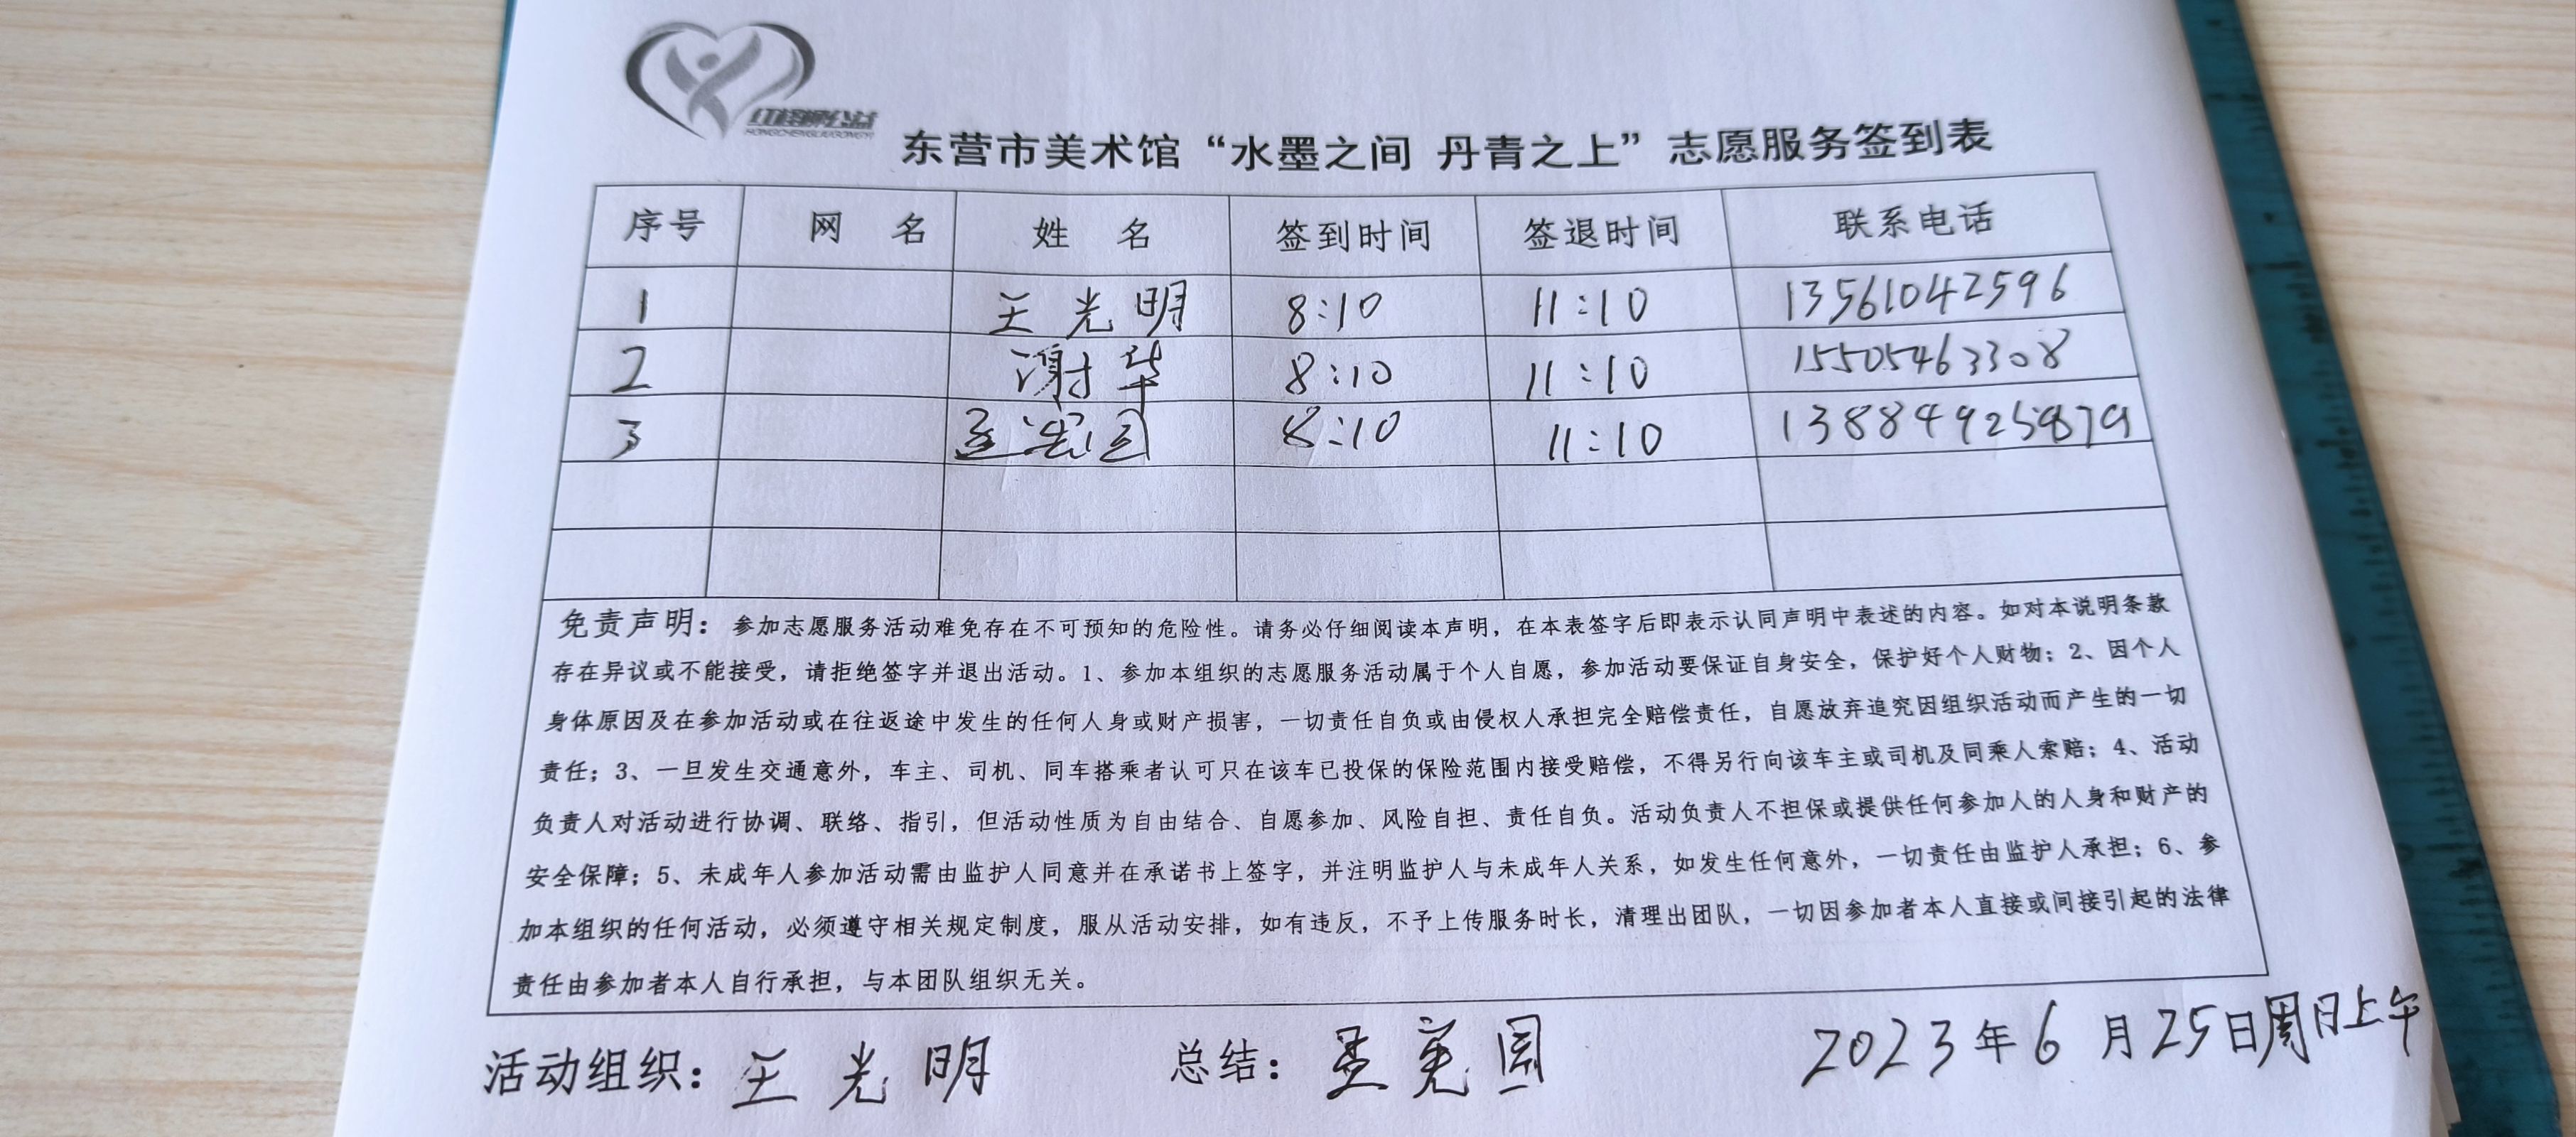 红柽柳公益
HONGCHENGLIUGONGYI
东营市美术馆“水墨之间 丹青之上”志愿服务签到表
序号 网 名 姓 名 签到时间 签退时间 联系电话
1 王光明 8:10 11:10 13561042596
2 谢华 8:10 11:10 15505463308
3 孟宪国 8:10 11:10
免责声明：参加志愿服务活动难免存在不可预知的危险性。请务必仔细阅读本声明，在本表签字后即表示认同声明中表述的内容。如对本说明条款
存在异议或不能接受，请拒绝签字并退出活动。1、参加本组织的志愿服务活动属于个人自愿，参加活动要保证自身安全，保护好个人财物；2、因个人
身体原因及在参加活动或在往返途中发生的任何人身或财产损害，一切责任自负或由侵权人承担完全赔偿责任，自愿放弃追究因组织活动而产生的一切
责任；3、一旦发生交通意外，车主、司机、同车搭乘者认可只在该车已投保的保险范围内接受赔偿，不得另行向该车主或司机及同乘人索赔；4、活动
负责人对活动进行协调、联络、指引，但活动性质为自由结合、自愿参加、风险自担、责任自负。活动负责人不担保或提供任何参加人的人身和财产的
安全保障；5、未成年人参加活动需由监护人同意并在承诺书上签字，并注明监护人与未成年人关系，如发生任何意外，一切责任由监护人承担；6、参
加本组织的任何活动，必须遵守相关规定制度，服从活动安排，如有违反，不予上传服务时长，清理出团队，一切因参加者本人直接或间接引起的法律
责任由参加者本人自行承担，与本团队组织无关。
活动组织：王光明 总结：孟宪国 2023年6月25日周日上午